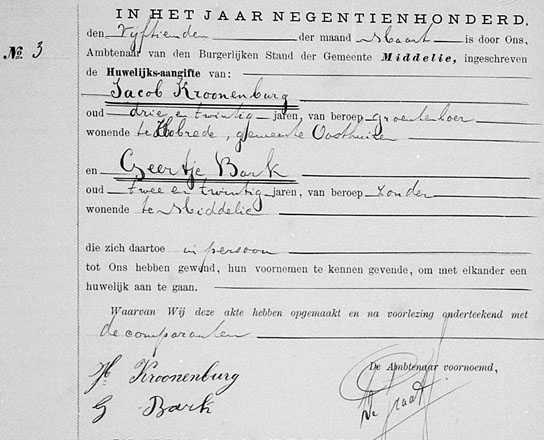 IN HET JAAR NEGENTIENHONDERD,
№. 3
den Vijftienden der maand Maart is door Ons,
Ambtenaar van den Burgerlijken Stand der Gemeente Middelie, ingeschreven
de Huwelijks-aangifte van:
Jacob Kroonenburg
oud drie en twintig jaren, van beroep groenteboer
wonende te Hobrede, gemeente Oosthuizen
en Geertje Bark
oud twee en twintig jaren, van beroep zonder
wonende te Middelie
die zich daartoe in persoon
tot Ons hebben gewend, hun voornemen te kennen gevende, om met elkander een
huwelijk aan te gaan.
Waarvan Wij deze akte hebben opgemaakt en na voorlezing onderteekend met
de comparanten
De Ambtenaar voornoemd,
Kroonenburg
G Bark
De Graaf